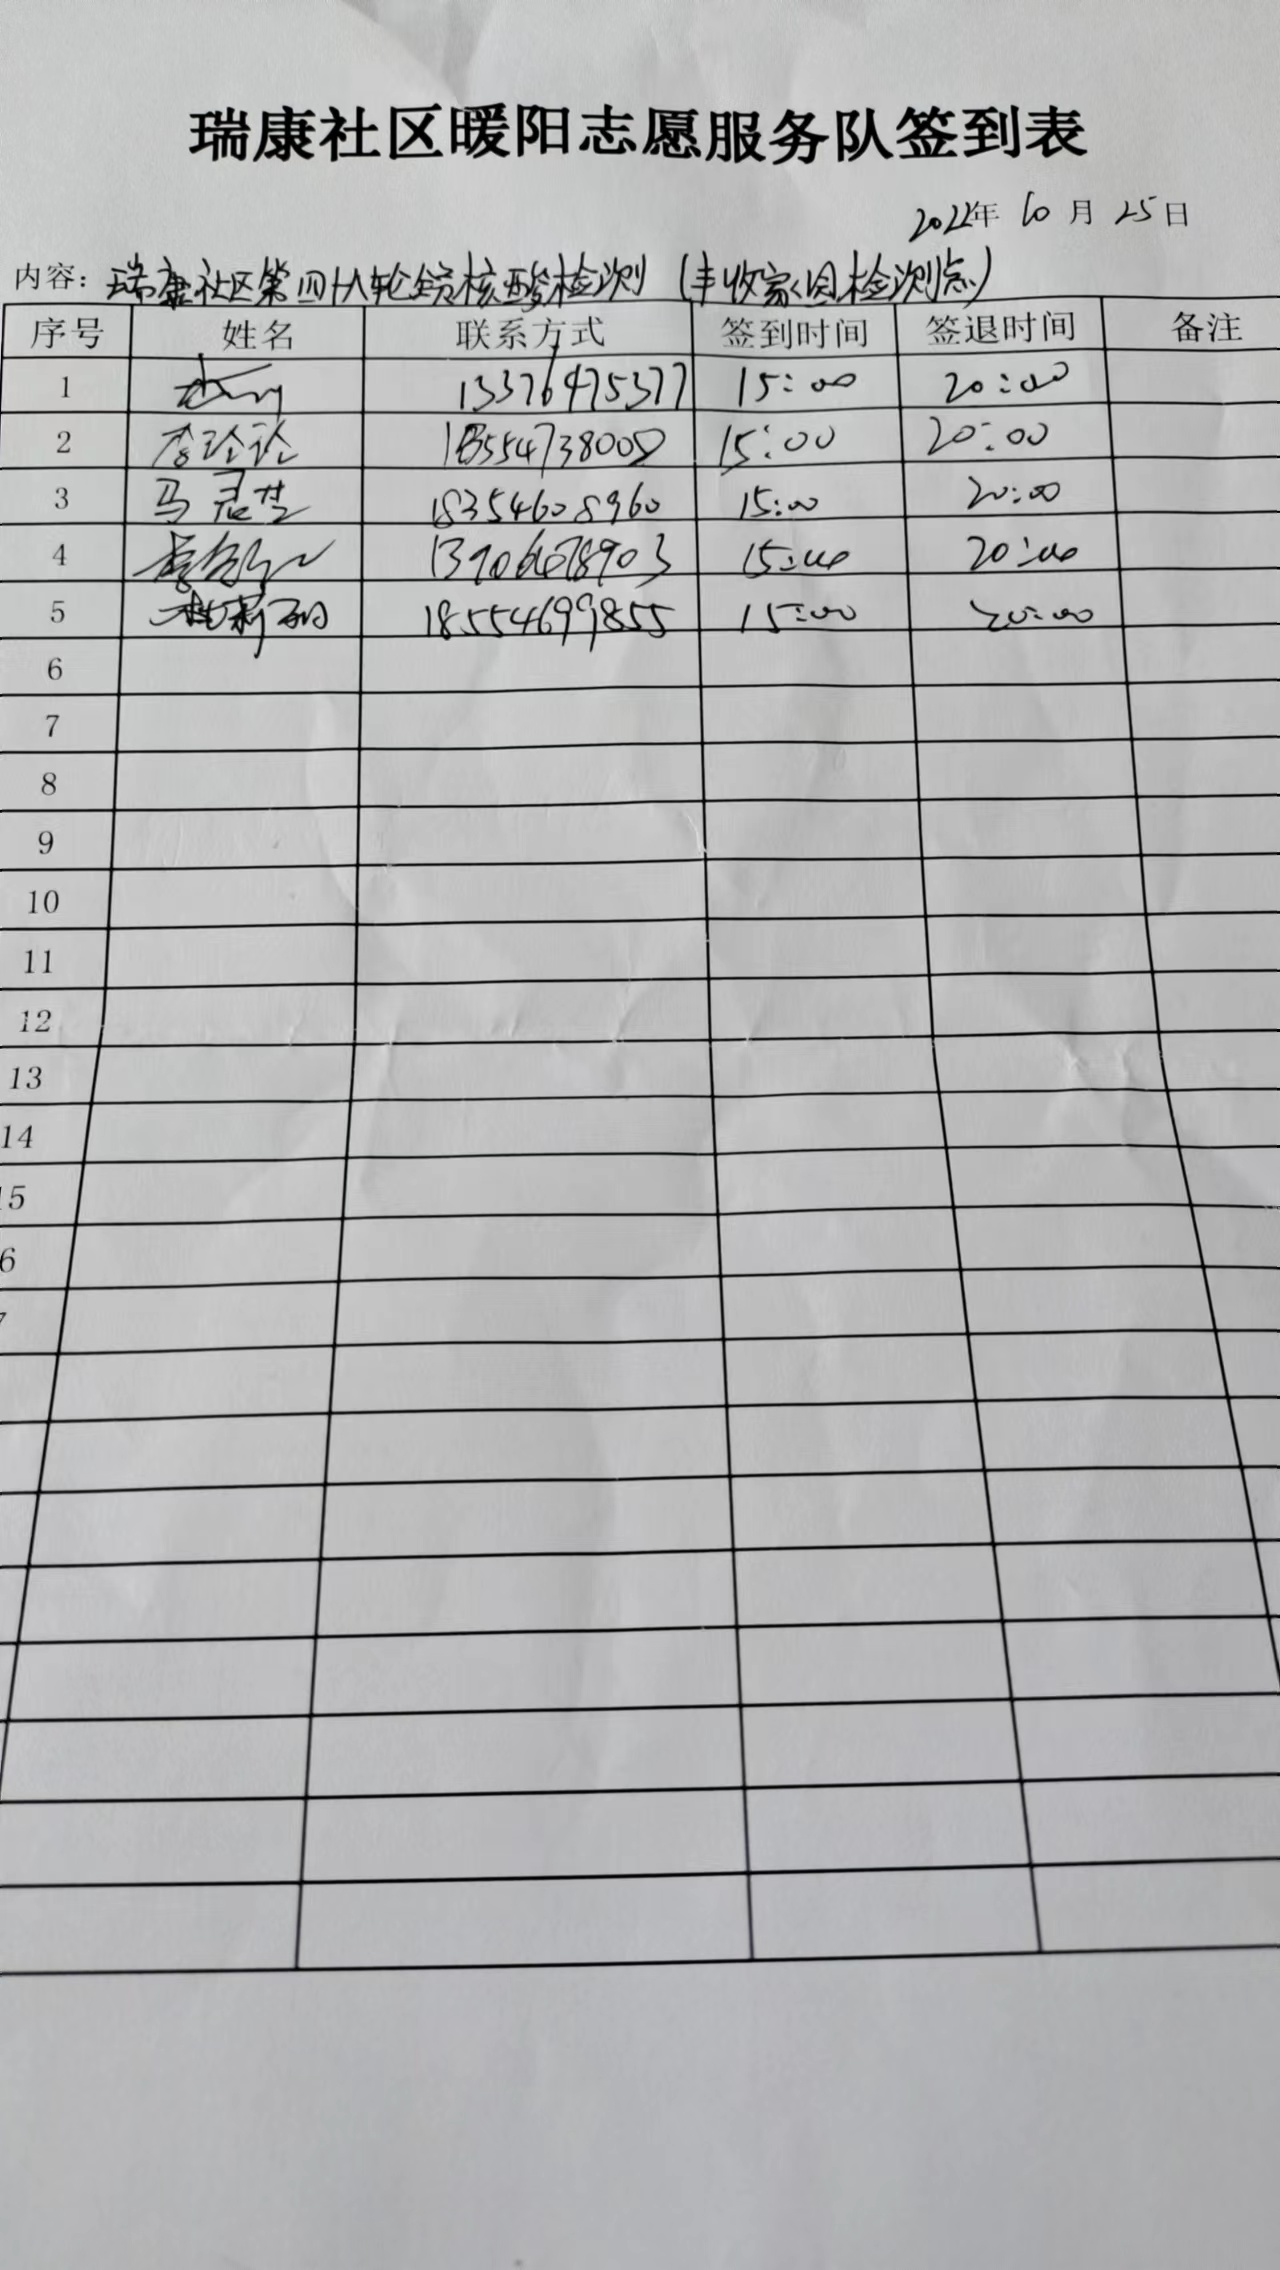 瑞康社区暖阳志愿服务队签到表
2022年 10月 25日
内容：瑞康社区第四十八轮全员核酸检测（丰收家园检测点）
序号 姓名 联系方式 签到时间 签退时间 备注
1 13376475377 15:00 20:00
2 李玲玲 18554738008 15:00 20:00
3 马 18354608960 15:00 20:00
4 13906478903 15:00 20:00
5 18554699855 15:00 20:00
6
7
8
9
10
11
12
13
14
15
6
7